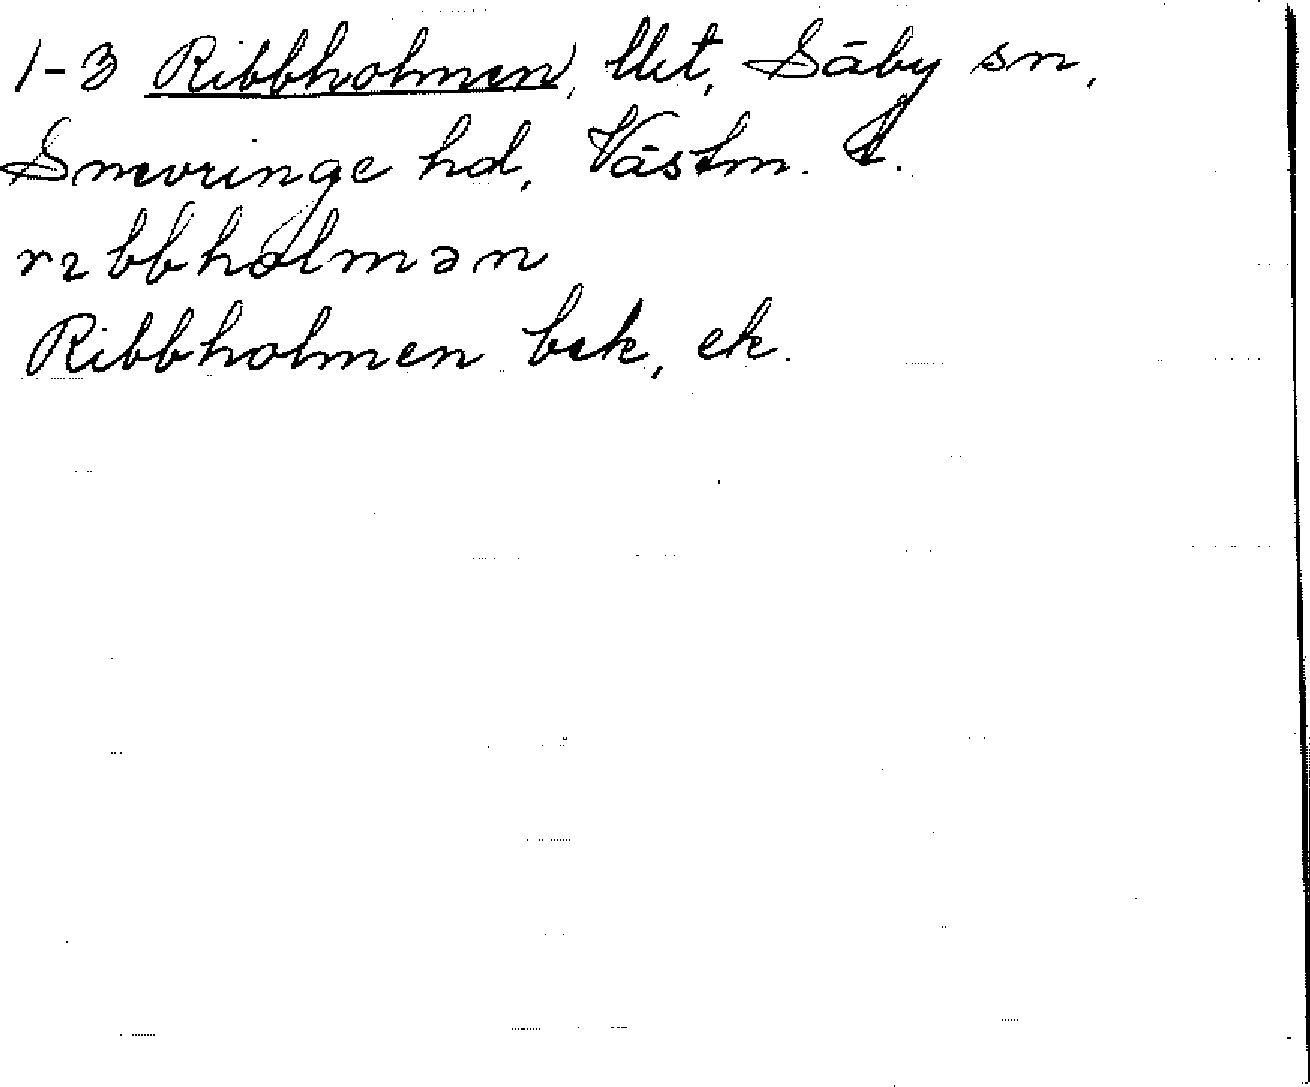 1-3 Ribbholmen, lht, Säby sn,
Snevringe hd, Västm. l.
rɩbbhålmən
Ribbholmen bek, ek.